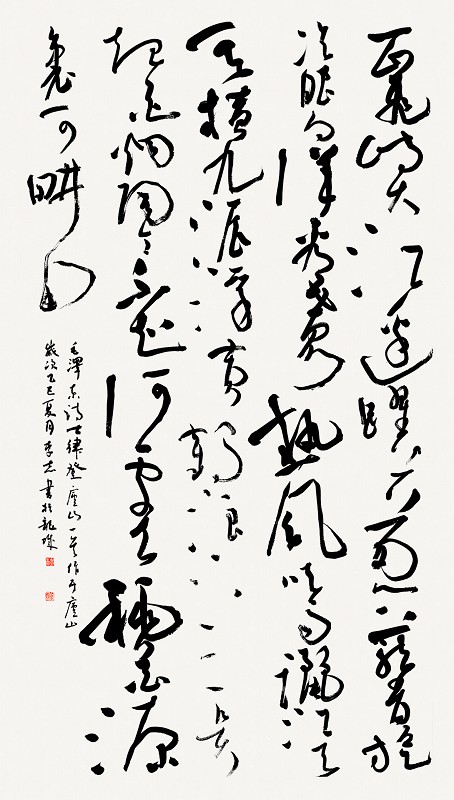 一山飛峙大江邊躍上葱蘢四百旋
冷眼向洋看世界熱風吹雨灑江天
雲橫九派浮黃鶴浪下三吳
起白煙陶令不知何處去桃花源
裏可耕田
毛澤東詩七律登廬山一首作于廬山
歲次乙巳夏月李志書於龍城